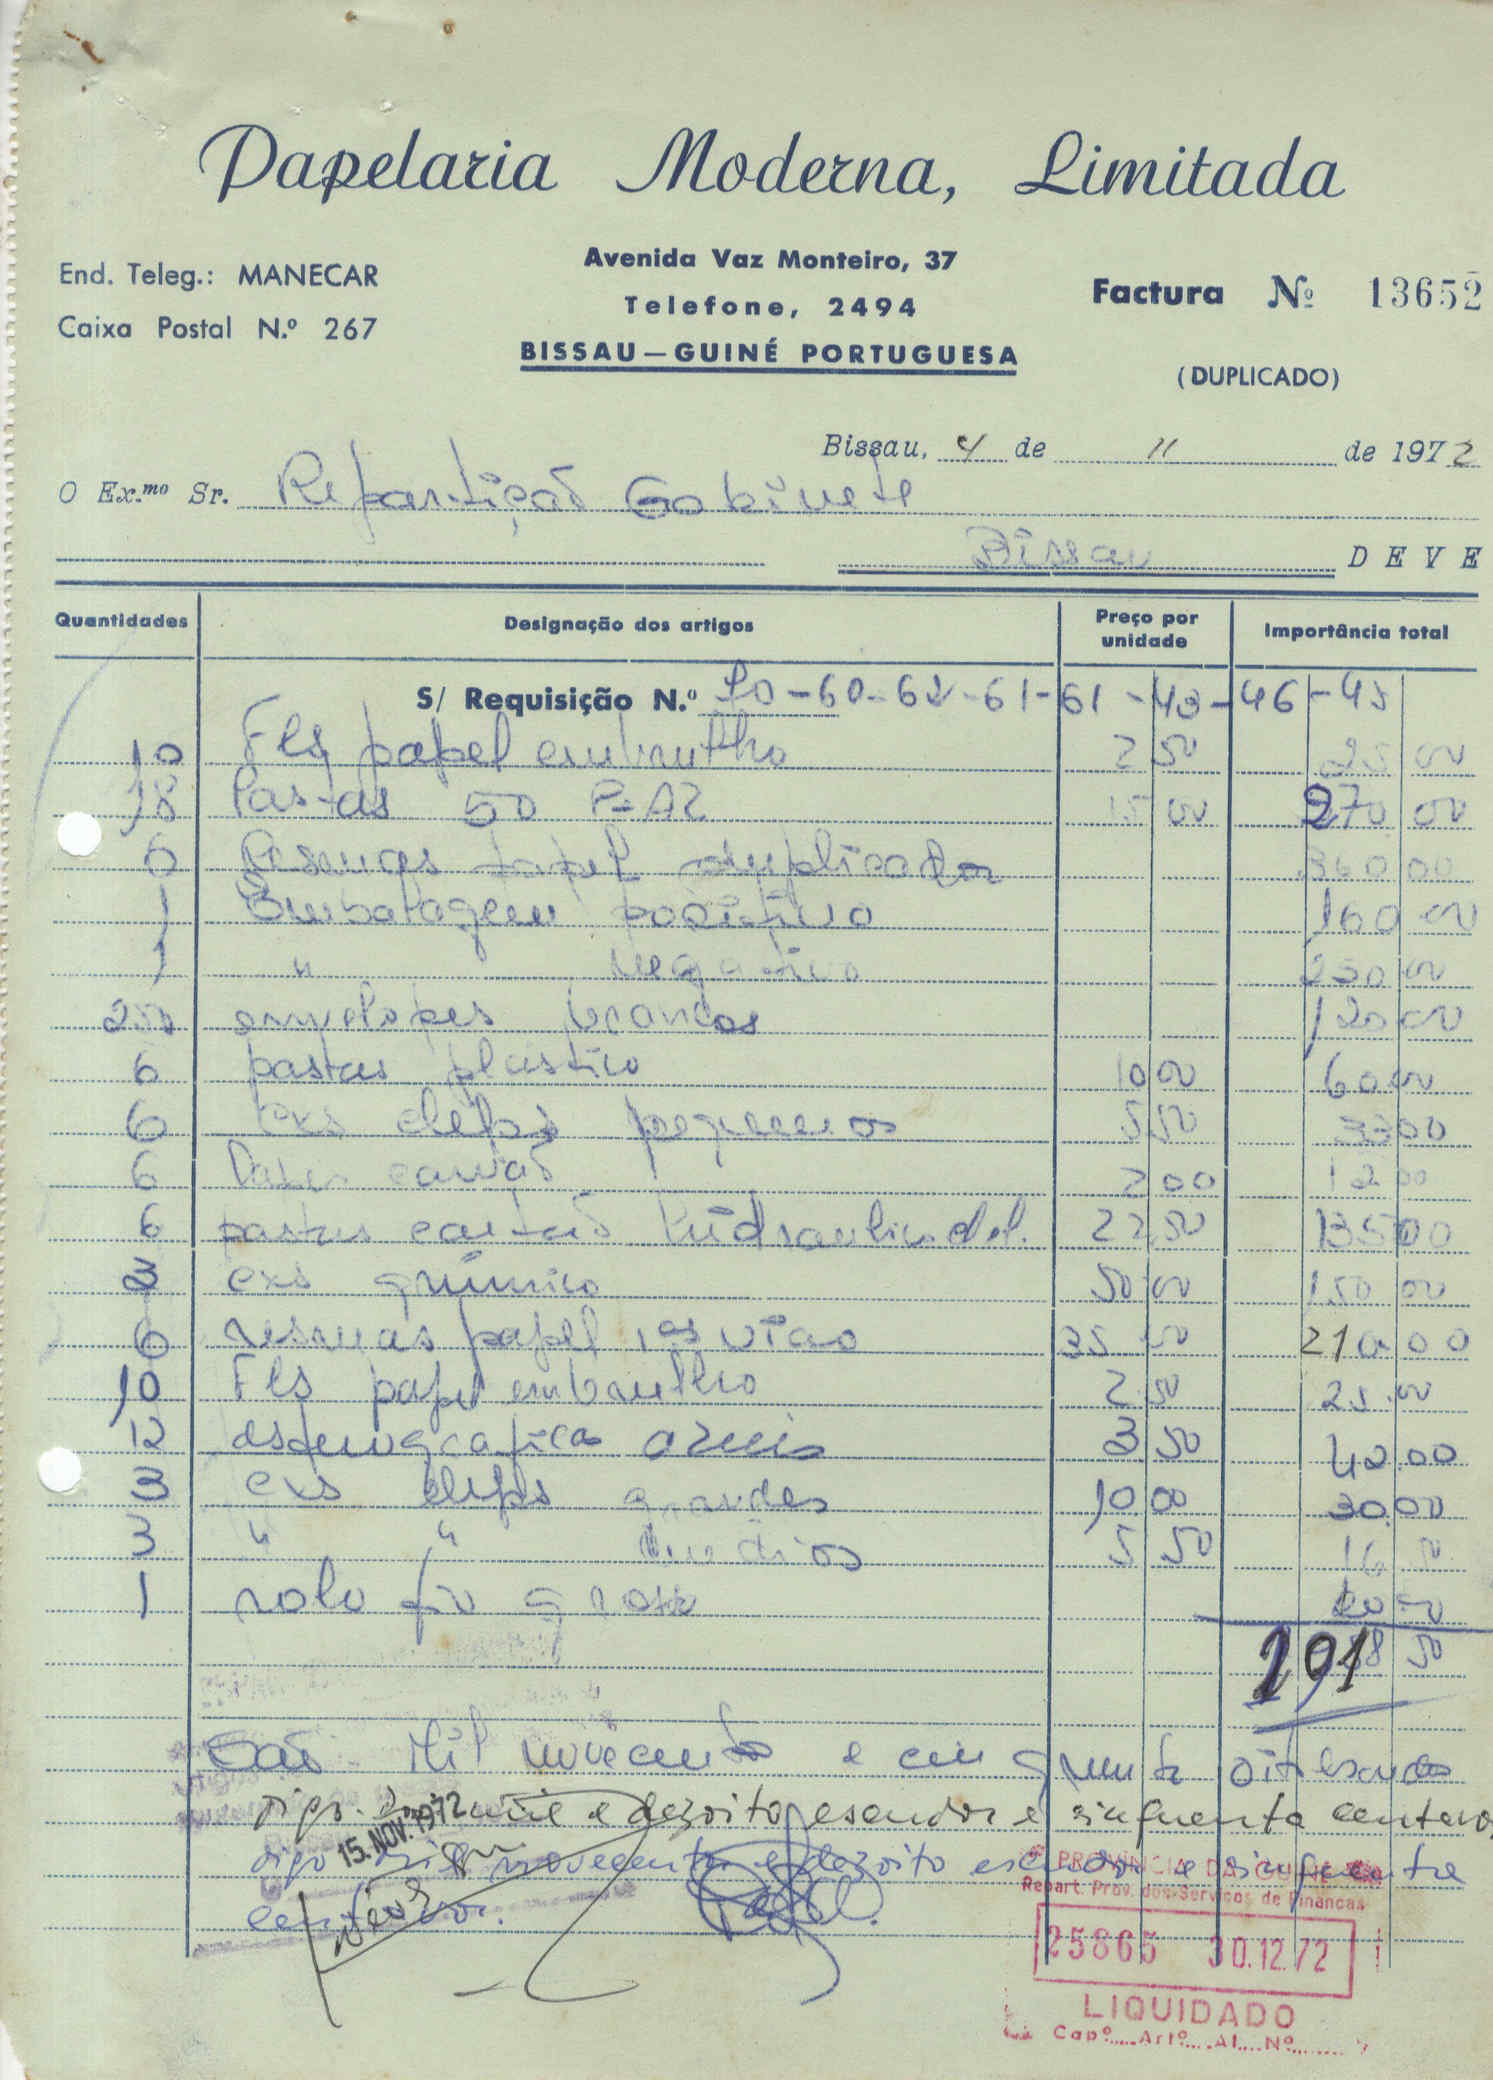 Papelaria Moderna, Limitada
End. Teleg.: MANECAR
Caixa Postal N.º 267
Avenida Vaz Monteiro, 37
Telefone, 2494
BISSAU—GUINÉ PORTUGUESA
Factura Nº 13652
(DUPLICADO)
Bissau, 4 de 11 de 1972
O Ex.mo Sr. Repartição Gabinete
Bissau DEVE
Quantidades Designação dos artigos Preço por unidade Importância total
S/ Requisição N.º 70-60-62-61-61-43-46-45
10 Fls papel embrulho 2 50 25 00
18 Pastas 50 P-AZ 15 00 270 00
6 Resmas papel duplicador 360 00
1 Embalagem positivo 160 00
1 " negativo 250 00
250 envelopes brancos 120 00
6 pastas plastico 10 00 60 00
6 cxs clips pequenos 5 50 33 00
6 carvão 2 00 12 00
6 pastas cartão 22 50 135 00
3 cxs químico 50 00 150 00
6 resmas papel 1as vias 35 00 210 00
10 Fls papel embrulho 2 50 25 00
12 esferograficas 3 50 42.00
3 cxs clips grandes 10 00 30.00
3 " " medios 5 50 16 50
1 rolo fio grosso 20 00
8 50
São Mil novecentos e cinquenta oito escudos
digo. mil e dezoito escudos e sinquenta centavos
digo mil novecentos e dezoito escudos e sinquenta
centavos.
15.NOV.1972
PROVÍNCIA DA GUINÉ
Repart. Prov. dos Serviços de Finanças
25865 30.12.72
LIQUIDADO
Capº.....Artº....Al....Nº........